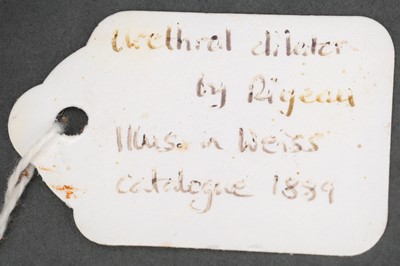 Urethral dilator
by Rigeau
Illus. in Weiss
catalogue 1889